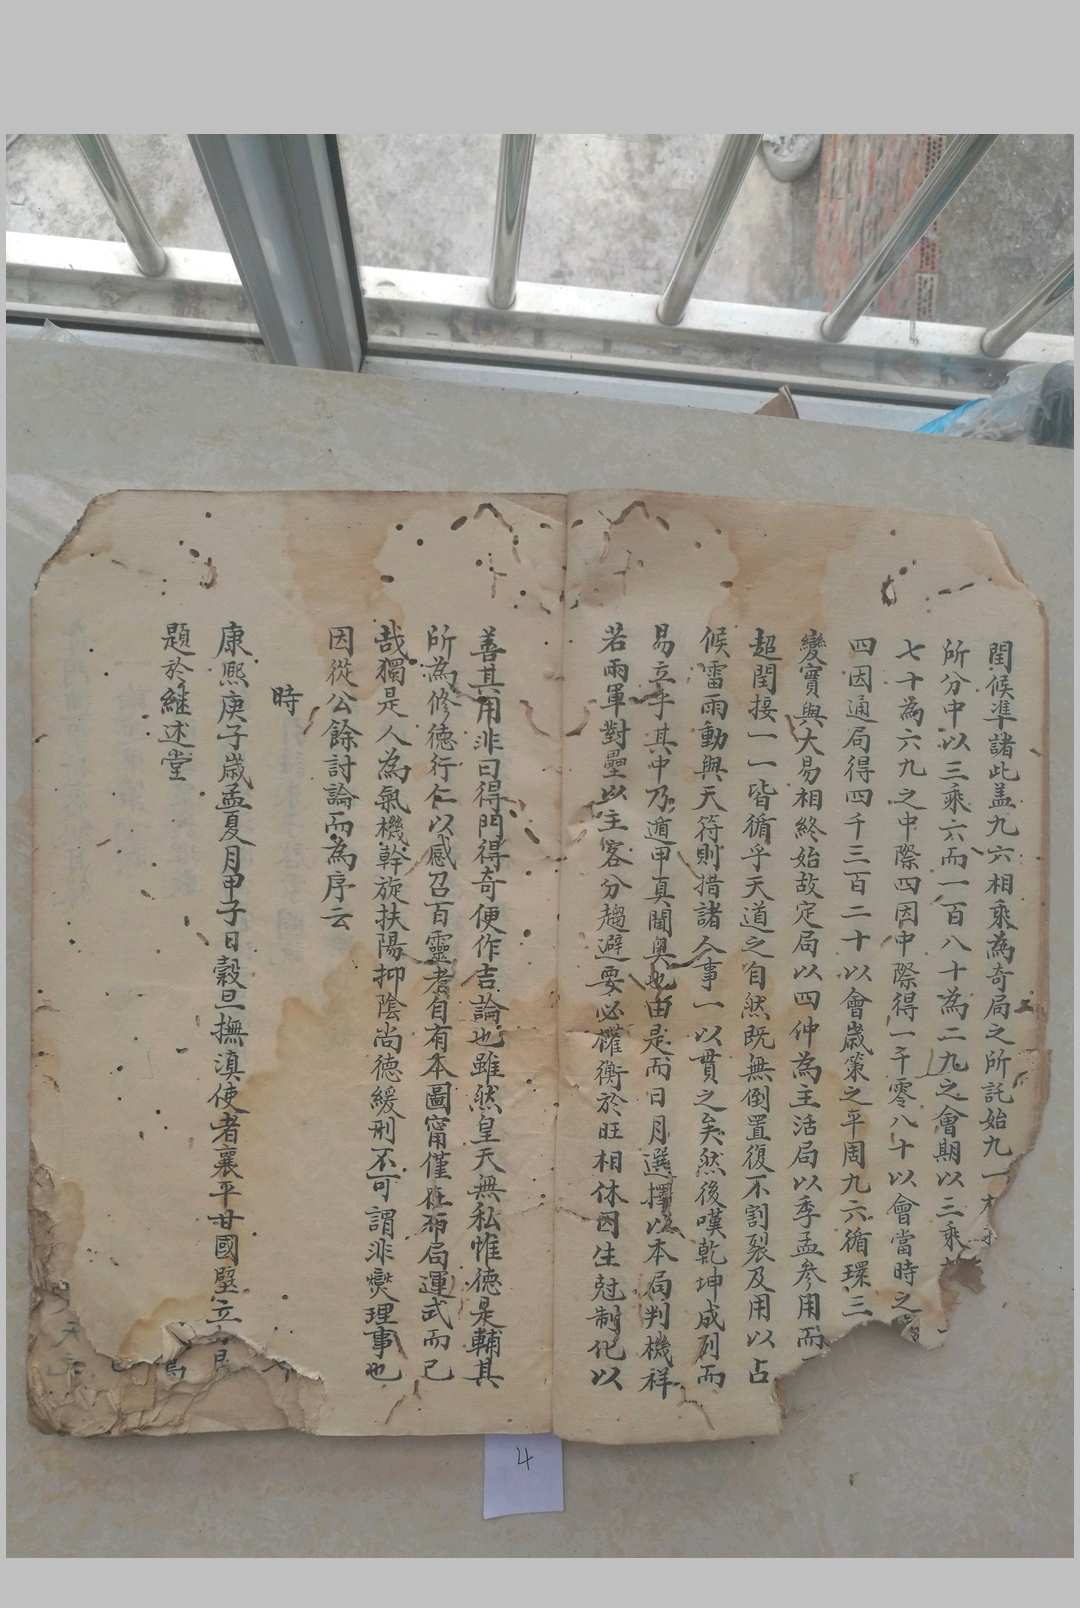 閏候準諸此盖九六相乘為奇局之所託始九一
所分中以三乘六而一百八十為二九之會期以三乘
七十為六九之中際四因中際得一千零八十以會當時之
四因通局得四千三百二十以會歲策之平周九六循環三
變實與大易相終始故定局以四仲為主活局以季孟参用而
超閏接一一皆循乎天道之自然既無倒置復不割裂及用以占
候雷雨動與天符則措諸人事一以貫之矣然後嘆乾坤成列而
易立乎其中乃遁甲真闡奥也由是而日月選擇以本局判機祥
若兩軍對壘以主客分趨避要必權衡於旺相休囚生尅制化以
善其用非曰得門得奇便作吉論也雖然皇天無私惟德是輔其
所為修德行仁以感召百靈者自有本圖甯僅在布局運式而已
哉獨是人為氣機斡旋扶陽抑陰尚德緩刑不可謂非燮理事也
因從公餘討論而為序云
時
康熙庚子歲孟夏月甲子日穀旦撫滇使者襄平甘國壁立
題於継述堂
4